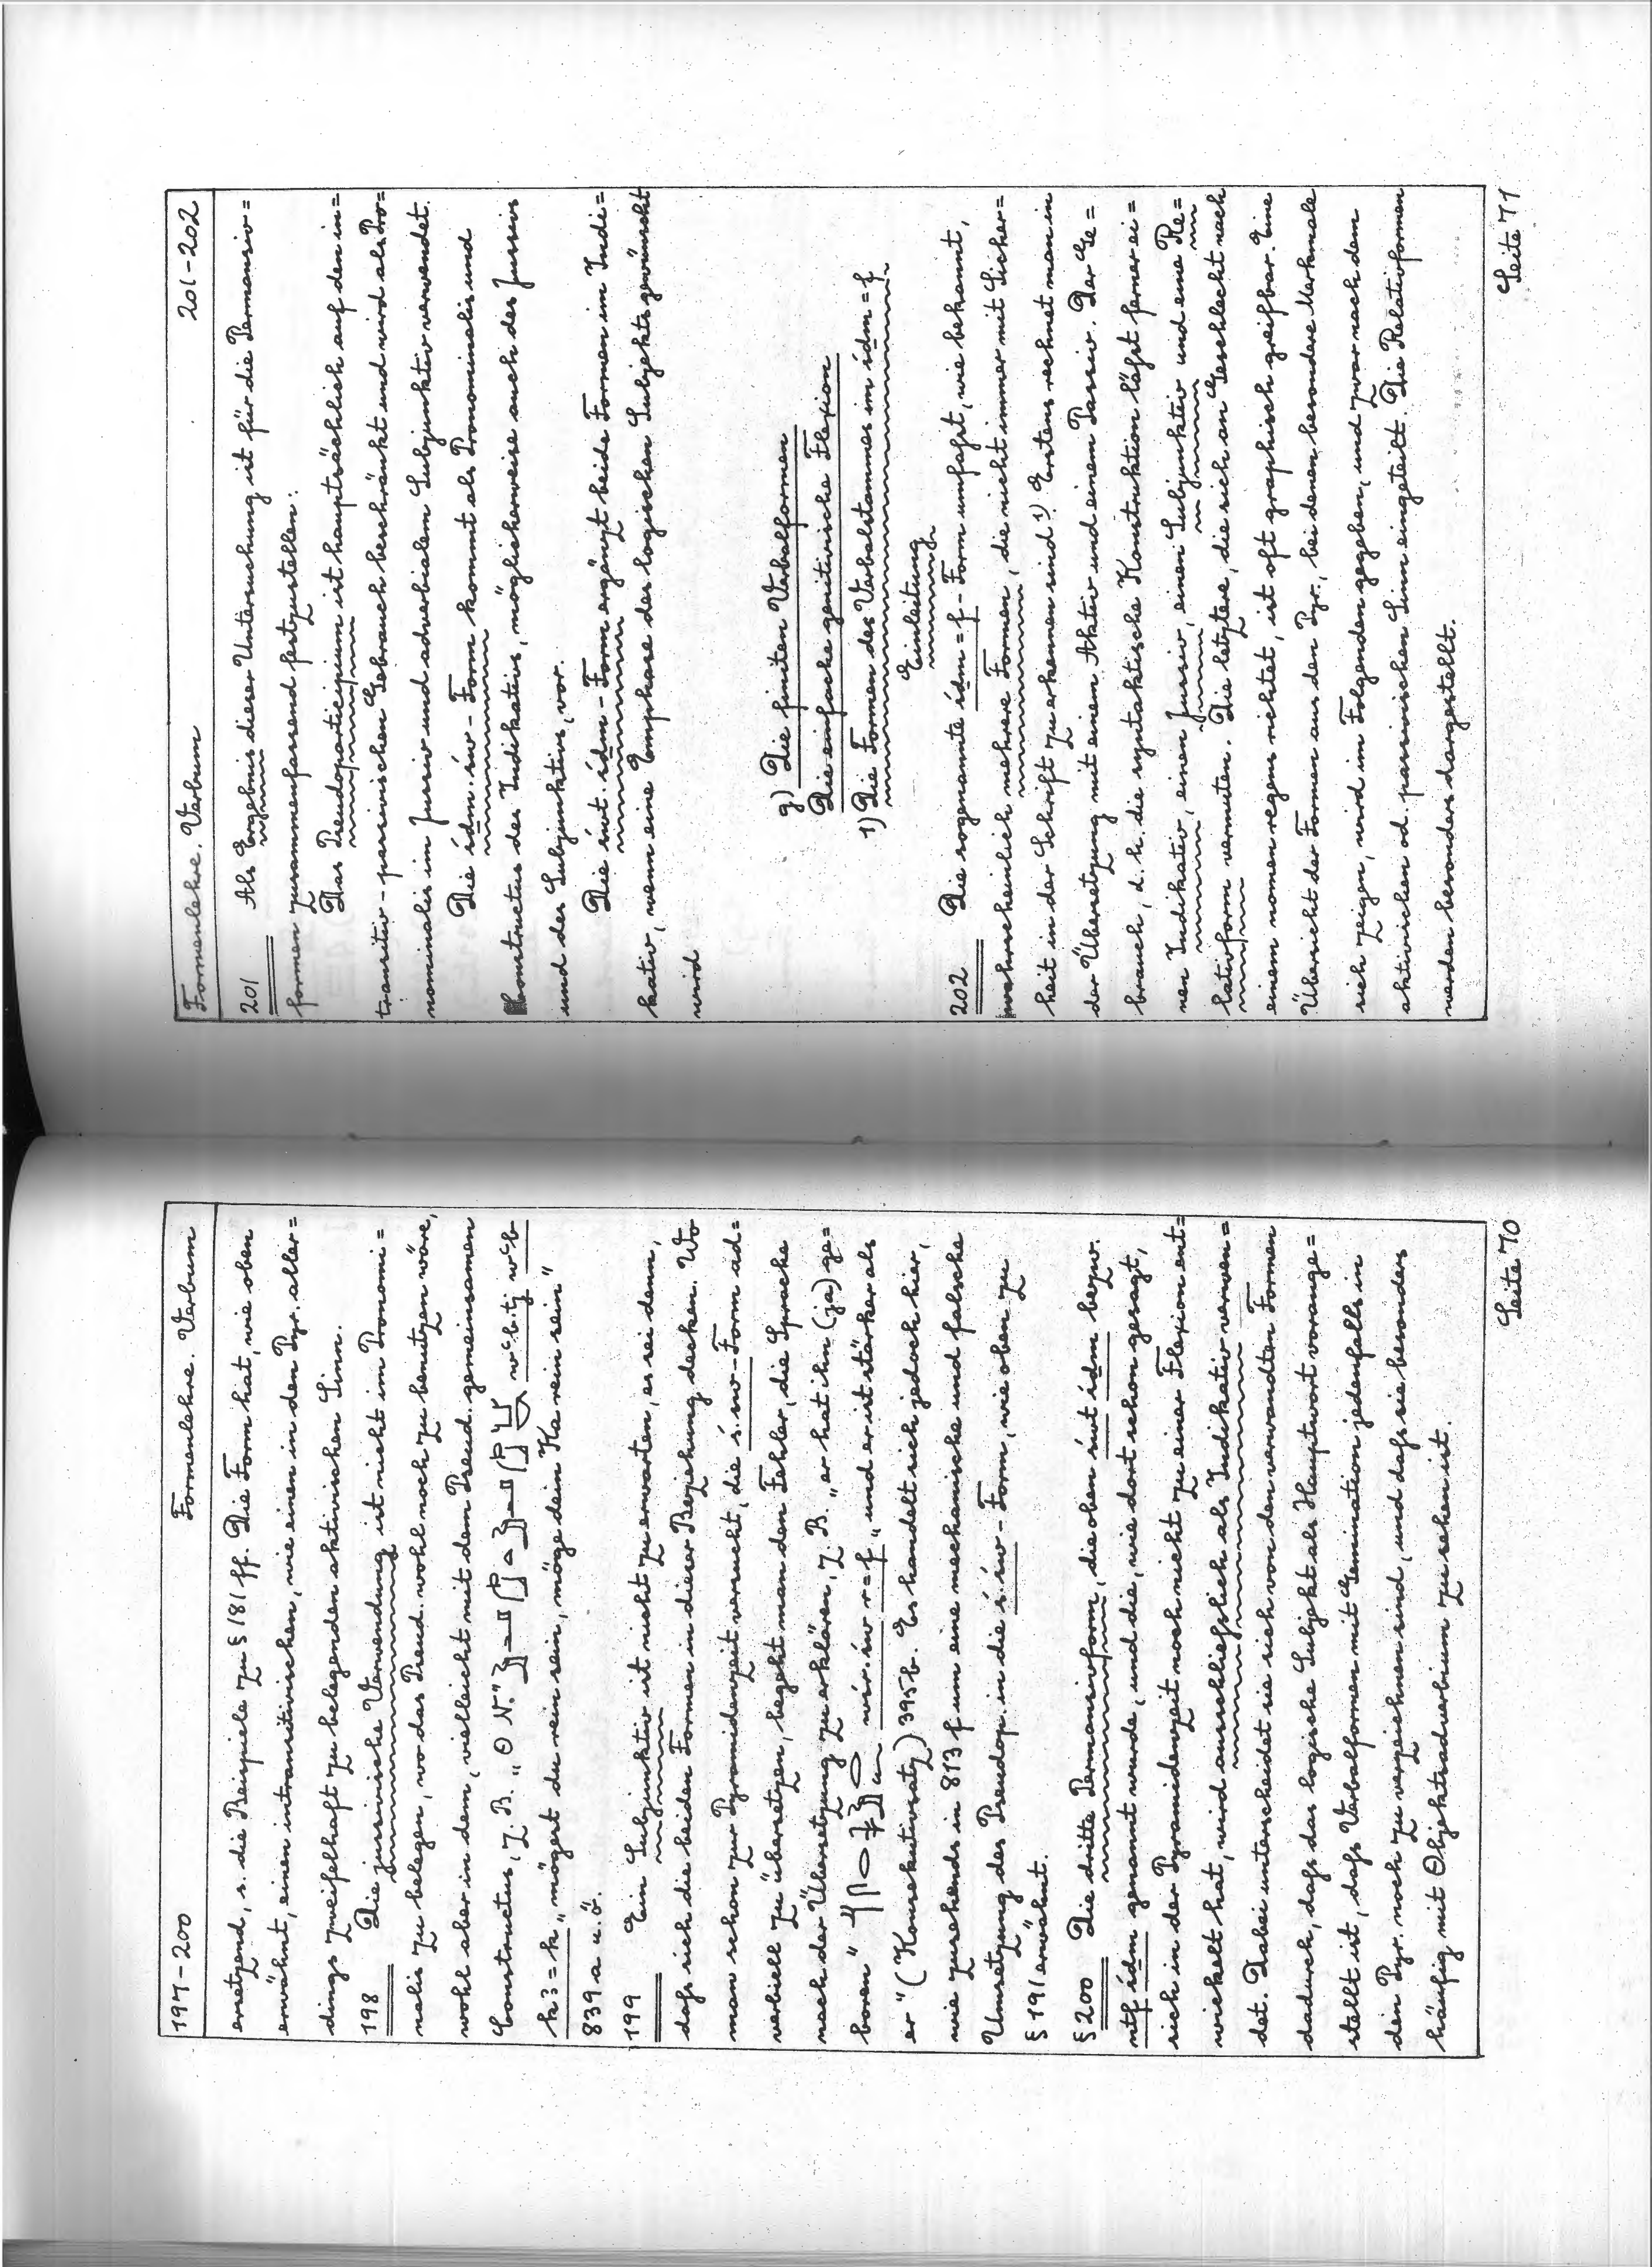 197-200 Formenlehre. Verbum
ersetzend, s. die Beispiele zu § 181 ff. Die Form hat, wie oben
erwähnt, einen intransitivischen, wie einen in den Pyr. aller=
dings zweifelhaft zu belegenden aktivischen Sinn.
198 Die jussivische Verwendung ist nicht im Pronomi=
nalis zu belegen, wo das Pseud. wohl noch zu benutzen wäre,
wohl aber in dem, vielleicht mit dem Pseud. gemeinsamen
Constructus, z. B. „ O N." wꜥb.tj wꜥb
kꜣ=k „mögest du rein sein, möge dein Ka rein sein"
839a u. ö.
199 Ein Subjunktiv ist nicht zu erwarten, es sei denn,
daſs sich die beiden Formen in dieser Beziehung decken. Wo
man schon zur Pyramidenzeit versucht, die ś.św-Form ad=
verbiell zu übersetzen, begeht man den Fehler, die Sprache
nach der Übersetzung zu erklären, z. B. „er hat ihn (ja) ge=
boren" wśr.św r=f „und er ist stärker als
er" (Konsekutivsatz) 395b. Es handelt sich jedoch hier,
wie zusehends in 813f um eine mechanische und falsche
Umsetzung des Pseudop. in die ś.św-Form, wie oben zu
§ 191 erwähnt.
§ 200 Die dritte Permansivform, die oben śwt ídm bezw.
ntf ídm genannt wurde, und die, wie dort schon gesagt,
sich in der Pyramidenzeit noch nicht zu einer Flexion ent=
wickelt hat, wird ausschlieſslich als Indikativ verwen=
det. Dabei unterscheidet sie sich von den verwandten Formen
dadurch, daſs das logische Subjekt als Hauptwort vorange=
stellt ist, daſs Verbalformen mit Gemination jedenfalls in
den Pyr. noch zu verzeichnen sind, und daſs sie besonders
häufig mit Objektsadverbium zu sehen ist.
Seite 70
Formenlehre. Verbum 201-202
201 Als Ergebnis dieser Untersuchung ist für die Permansiv=
formen zusammenfassend festzustellen:
Das Pseudoparticipium ist hauptsächlich auf den in=
transitiv-passivischen Gebrauch beschränkt und wird als Pro=
nominalis im Jussiv und adverbialem Subjunktiv verwendet.
Die ídm.św-Form kommt als Pronominalis und
Constructus des Indikativs, möglicherweise auch des Jussivs
und des Subjunktivs, vor.
Die śwt.ídm-Form ergänzt beide Formen im Indi=
kativ, wenn eine Emphase des logischen Subjekts gewünscht
wird
g) Die finiten Verbalformen
Die einfache genitivische Flexion
1) Die Formen des Verbalstammes im ídm=f
Einleitung
202 Die sogenannte ídm=f-Form umfaſst, wie bekannt,
wahrscheinlich mehrere Formen, die nicht immer mit Sicher=
heit in der Schrift zu erkennen sind 1). Erstens rechnet man in
der Übersetzung mit einem Aktiv und einem Passiv. Der Ge=
brauch, d. h. die syntaktische Konstruktion läſst ferner ei=
nen Indikativ, einen Jussiv, einen Subjunktiv und eine Re=
lativform vermuten. Die letztere, die sich an Geschlecht nach
einem nomen regens richtet, ist oft graphisch greifbar. Eine
Übersicht der Formen aus den Pyr., bei denen besondere Merkmale
sich zeigen, wird im Folgenden gegeben, und zwar nach dem
aktivischen od. passivischen Sinn eingeteilt. Die Relativformen
werden besonders dargestellt.
Seite 71